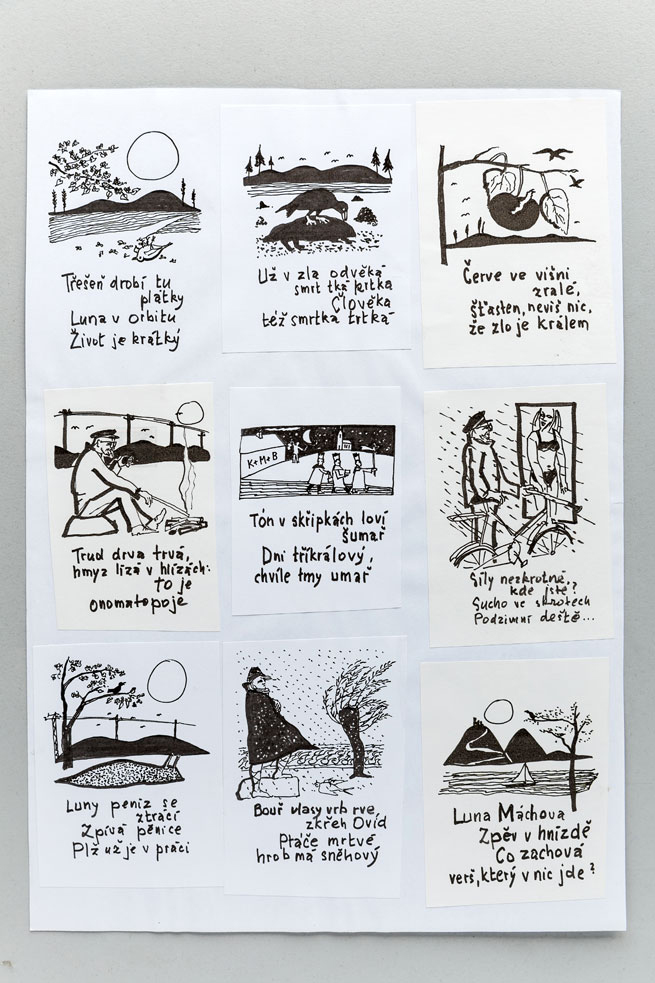 Třešeň drobí tu
plátky
Luna v orbitu
Život je krátký
Už v zla odvěká
smrt tká krtka
Člověka
též smrtka trtká
Červe ve višni
zralé,
šťasten, nevíš nic,
že zlo je králem
Trud drva trvá,
hmyz lízá v hlízách:
to je
onomatopoje
K+M+B
Tón v skřipkách loví
šumař
Dni tříkrálový,
chvíle tmy umař
Síly nezkrotné,
kde jste?
Sucho ve šhrotech
Podzimní deště...
Luny peníz se
ztrácí
Zpívá pěnice
Plž už je v práci
Bouř vlasy vrb rve,
zkřeh Ovid
Ptáče mrtvé
hrob má sněhový
Luna Máchova
Zpěv v hnízdě
Co zachová
verš, který v nic jde?